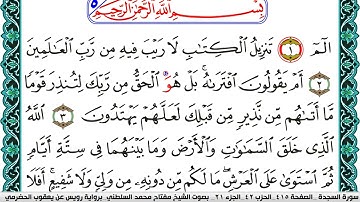 بِسْمِ اللَّهِ الرَّحْمَٰنِ الرَّحِيمِ
الٓمٓ ١ تَنزِيلُ الْكِتَٰبِ لَا رَيْبَ فِيهِ مِن رَّبِّ الْعَٰلَمِينَ
٢ أَمْ يَقُولُونَ افْتَرَىٰهُ ۚ بَلْ هُوَ الْحَقُّ مِن رَّبِّكَ لِتُنذِرَ قَوْمًا
مَّا أَتَىٰهُم مِّن نَّذِيرٍ مِّن قَبْلِكَ لَعَلَّهُمْ يَهْتَدُونَ ٣ اللَّهُ
الَّذِي خَلَقَ السَّمَٰوَٰتِ وَالْأَرْضَ وَمَا بَيْنَهُمَا فِي سِتَّةِ أَيَّامٍ
ثُمَّ اسْتَوَىٰ عَلَى الْعَرْشِ ۖ مَا لَكُم مِّن دُونِهِ مِن وَلِيٍّ وَلَا شَفِيعٍ ۚ أَفَلَا
سورة السجدة . الصفحة ٤١٥ . الحزب ٤٢ . الجزء ٢١ . بصوت الشيخ مفتاح محمد السلطني برواية رويس عن يعقوب الحضرمي